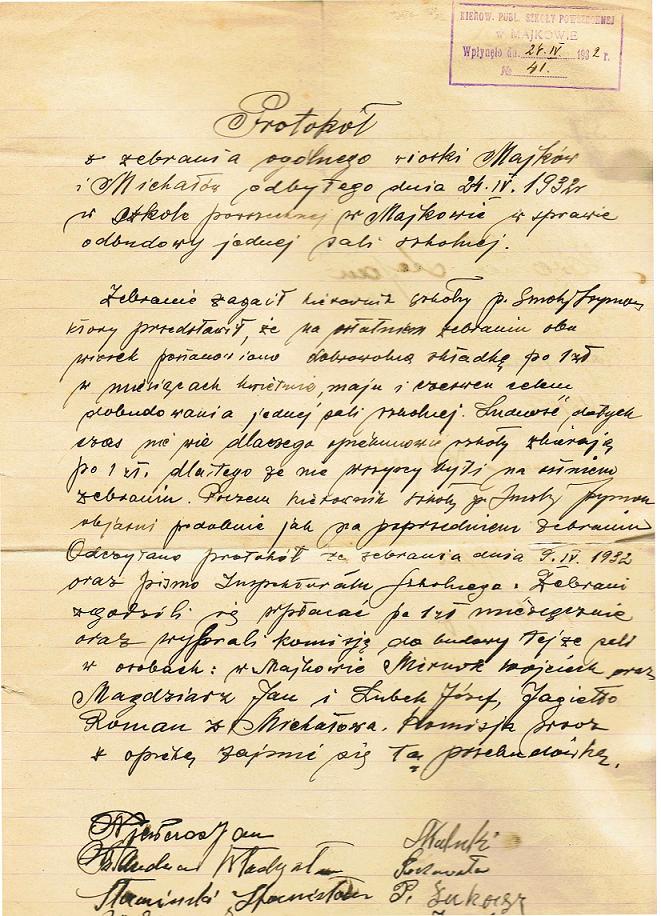 KIEROW. PUBL. SZKOŁY POWSZECHNEJ
w MAJKOWIE
Wpłynęło dn. 24.IV. 1932 r.
№ 41.
Protokół
z zebrania ogólnego wioski Majków
i Michałów odbytego dnia 24.IV. 1932r
w szkole powszechnej w Majkowie w sprawie
odbudowy jednej sali szkolnej.
Zebranie zagaił kierownik szkoły p. Smoły Szymon
który przedstawił, że na ostatniem zebraniu obu
wiosek postanowiono dobrowolną składkę po 1 zł
w miesiącach kwietniu, maju i czerwcu celem
dobudowania jednej sali szkolnej. Ludność dotych
czas nie wie dlaczego opiekunowie szkoły zbierają
po 1 zł. dlatego że nie wszyscy byli na
zebraniu. kierownik szkoły p. Smoły Szymon
objaśni podobnie jak na poprzedniem zebraniu
Odczytano protokół ze zebrania dnia 9.IV. 1932
oraz pismo Inspektoratu Szkolnego. Zebrani
zgodzili się wpłacać po 1 zł miesięcznie
oraz wybrali komisję do budowy tejże sali
w osobach: w Majkowie Wojciech oraz
Mazdziarz Jan i Lubek Józef, Jagiełło
Roman z Michałowa. Komisja wraz
z opieką zajmie się tą przebudówką.
Jan
Władysław
Stanisław P.